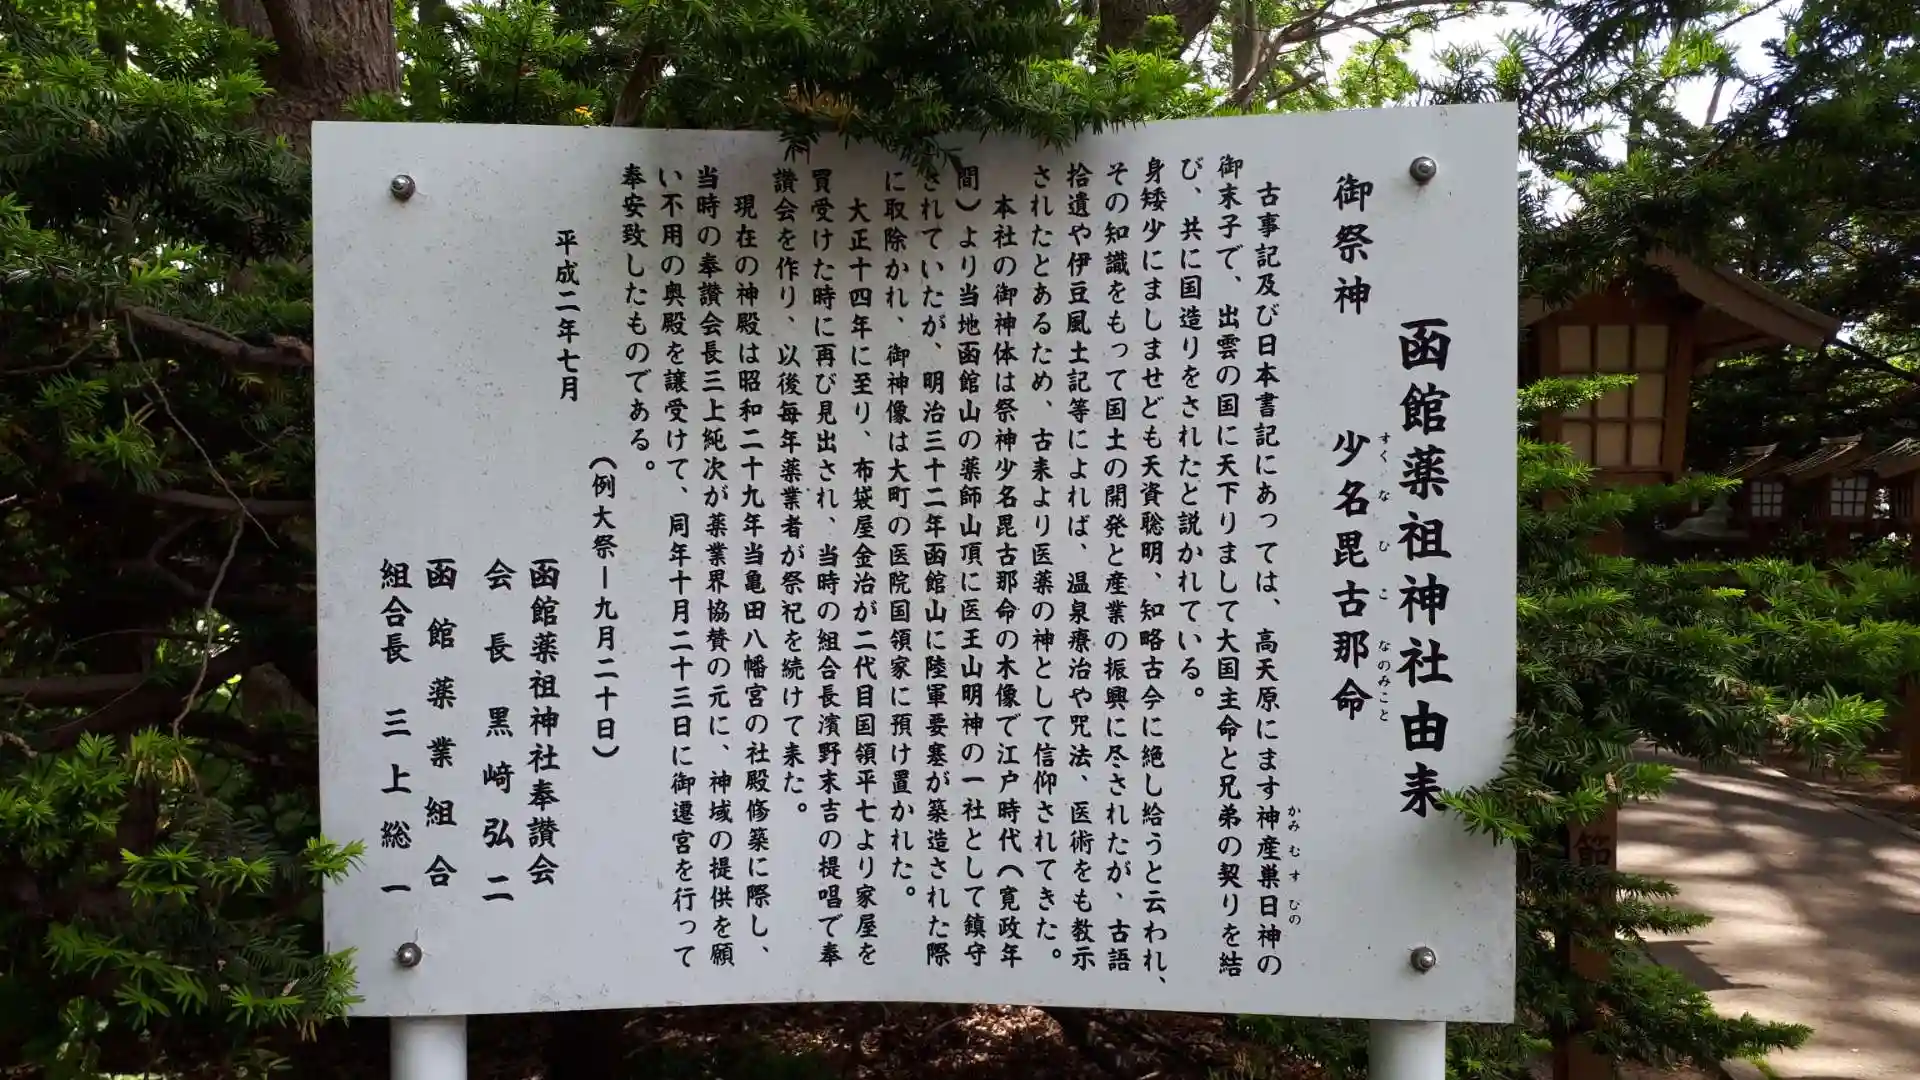 函館薬祖神社由来
御祭神 少名毘古那命
すくなひこなのみこと
古事記及び日本書記にあっては、高天原にます神産巣日神の
かみむすひの
御末子で、出雲の国に天下りまして大国主命と兄弟の契りを結
び、共に国造りをされたと説かれている。
身矮少にましませども天資聡明、知略古今に絶し給うと云われ、
その知識をもって国土の開発と産業の振興に尽されたが、古語
拾遺や伊豆風土記等によれば、温泉療治や咒法、医術をも教示
されたとあるため、古来より医薬の神として信仰されてきた。
本社の御神体は祭神少名毘古那命の木像で江戸時代(寛政年
間)より当地函館山の薬師山頂に医王山明神の一社として鎮守
されていたが、明治三十二年函館山に陸軍要塞が築造された際
に取除かれ、御神像は大町の医院国領家に預け置かれた。
大正十四年に至り、布袋屋金治が二代目国領平七より家屋を
買受けた時に再び見出され、当時の組合長濱野末吉の提唱で奉
讃会を作り、以後毎年薬業者が祭祀を続けて来た。
現在の神殿は昭和二十九年当亀田八幡宮の社殿修築に際し、
当時の奉讃会長三上純次が薬業界協賛の元に、神域の提供を願
い不用の奥殿を譲受けて、同年十月二十三日に御遷宮を行って
奉安致したものである。
(例大祭ー九月二十日)
平成二年七月
函館薬祖神社奉讃会
会長 黒崎弘二
函館薬業組合
組合長 三上総一
節